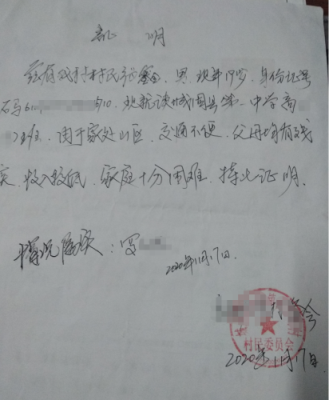 证 明
兹有我村村民 男 现年19岁 身份证号
码 610 现就读城固县 中 高
班 由于家处山区 交通不便 父母均有残
疾 收入较低 家庭十分困难 特此证明
情况属实
2020年11月17日
村民委员会
2020年11月17日